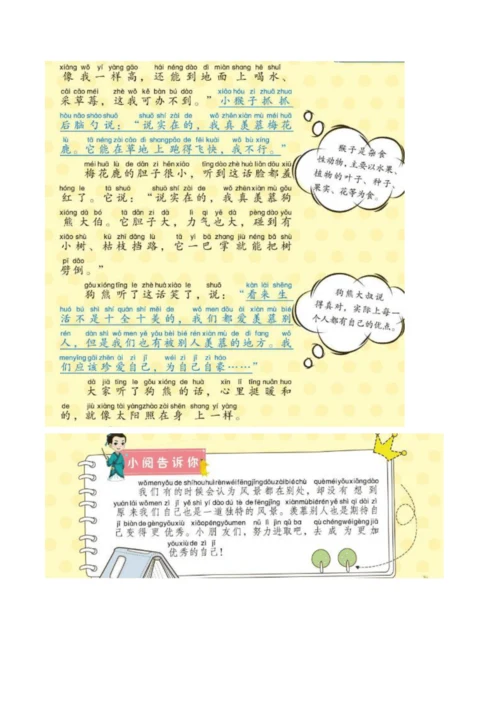 xiàng wǒ yí yàng gāo hái néng dào dì miàn shang hē shuǐ
像我一样高，还能到地面上喝水、
cǎi cǎo méi zhè wǒ kě bàn bú dào xiǎo hóu zi zhuā zhua
采草莓，这我可办不到。”小猴子抓抓
hòu nǎo sháo shuō shuō shí zài de wǒ zhēn xiàn mù méi huā
后脑勺说：“说实在的，我真羡慕梅花
lù tā néng zài cǎo dì shang pǎo de fēi kuài wǒ bù xíng
鹿。它能在草地上跑得飞快，我不行。”
méi huā lù de dǎn zi hěn xiǎo tīng dào zhè huà liǎn dōu xiū
梅花鹿的胆子很小，听到这话脸都羞
hóng le tā shuō shuō shí zài de wǒ xiàn mù gǒu
红了。它说：“说实在的，我羡慕狗
xióng dà bó tā dǎn zi dà lì qi yě dà pèng dào yǒu
熊大伯。它胆子大，力气也大，碰到有
xiǎo shù kū zhī dǎng lù tā yì bā zhang jiù néng bǎ shù
小树、枯枝挡路，它一巴掌就能把树
pī dǎo
劈倒。”
gǒu xióng tīng le zhè huà xiào le shuō kàn lái shēng
狗熊听了这话笑了，说：“看来生
huó bú shì shí quán shí měi de wǒ men dōu ài xiàn mù bié
活不是十全十美的，我们都爱羡慕别
rén dàn shì wǒ men yě yǒu bèi bié rén xiàn mù de dì fang wǒ
人，但是我们也有被别人羡慕的地方。我
men yīng gāi zhēn ài zì jǐ wèi zì jǐ zì háo
们应该珍爱自己，为自己自豪……”
dà jiā tīng le gǒu xióng de huà xīn lǐ tǐng nuǎn huo
大家听了狗熊的话，心里挺暖和
de jiù xiàng tài yáng zhào zài shēn shang yí yàng
的，就像太阳照在身上一样。
猴子是杂食
性动物，主要以水果、
植物的叶子、种子、
果实、花等为食。
狗熊大叔说
得真对，实际上每一
个人都有自己的优点。
小阅告诉你
wǒ men yǒu de shí hou huì rèn wéi fēng jǐng dōu zài bié chù què méi yǒu xiǎng dào
我们有的时候会认为风景都在别处，却没有想到
yuán lái wǒ men zì jǐ yě shì yí dào dú tè de fēng jǐng xiàn mù bié rén yě shì qī dài zì
原来我们自己也是一道独特的风景。羡慕别人也是期待自
jǐ biàn de gèng yōu xiù xiǎo péng yǒu men nǔ lì jìn qǔ ba qù chéng wéi gèng jiā
己变得更优秀。小朋友们，努力进取吧，去成为更加
yōu xiù de zì jǐ
优秀的自己！